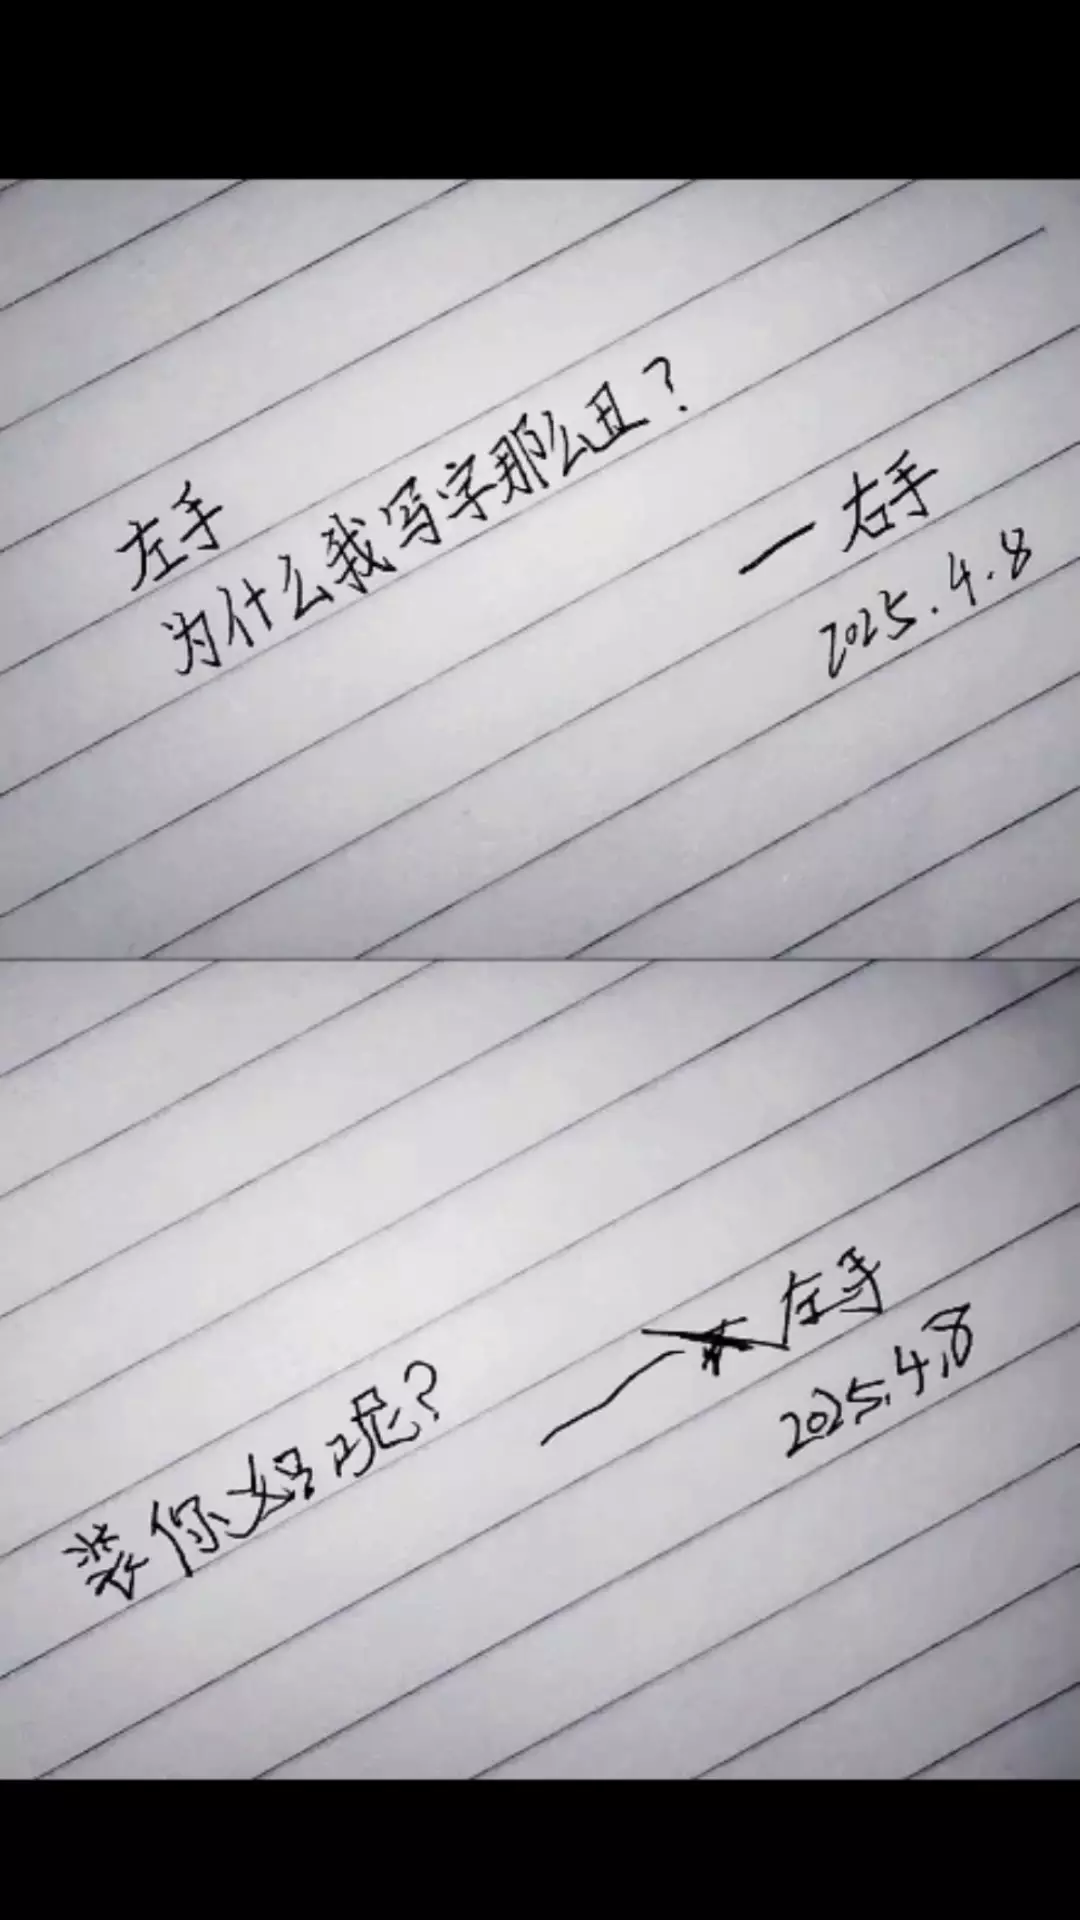 左手
为什么我写字那么丑?
一右手
2025.4.8
装你妈呢?
——左手
2025.4.8